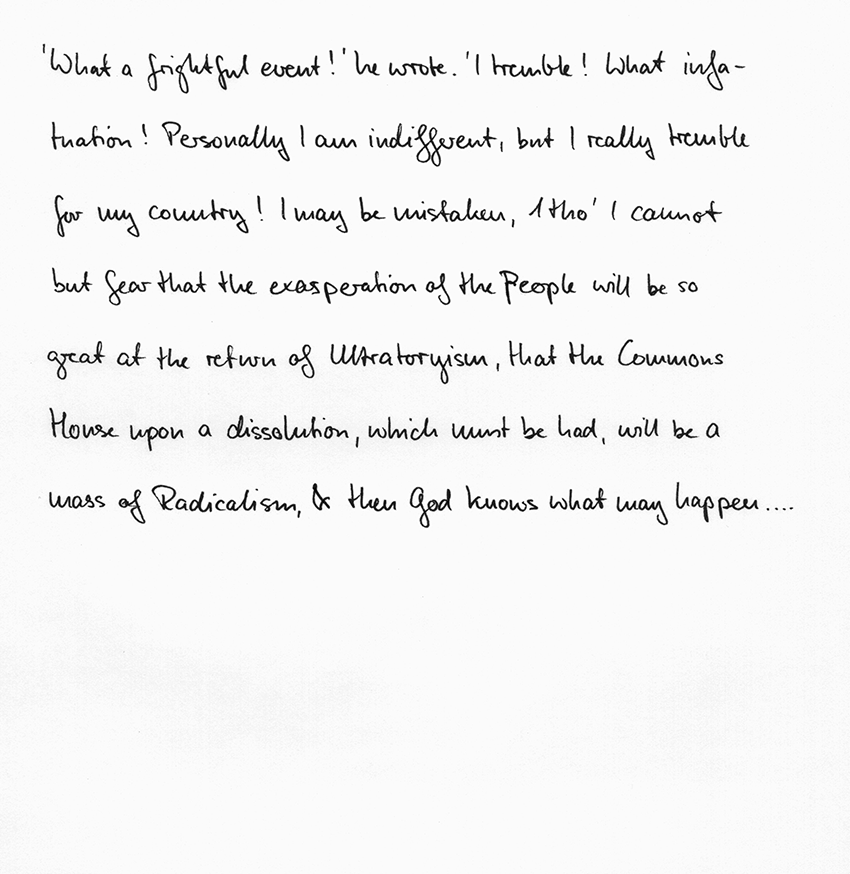 'What a frightful event!' he wrote. 'I tremble! What infa-
tuation! Personally I am indifferent, but I really tremble
for my country! I may be mistaken, 1tho' I cannot
but fear that the exasperation of the People will be so
great at the return of Ultratoryism, that the Commons
House upon a dissolution, which must be had, will be a
mass of Radicalism, & then God knows what may happen....